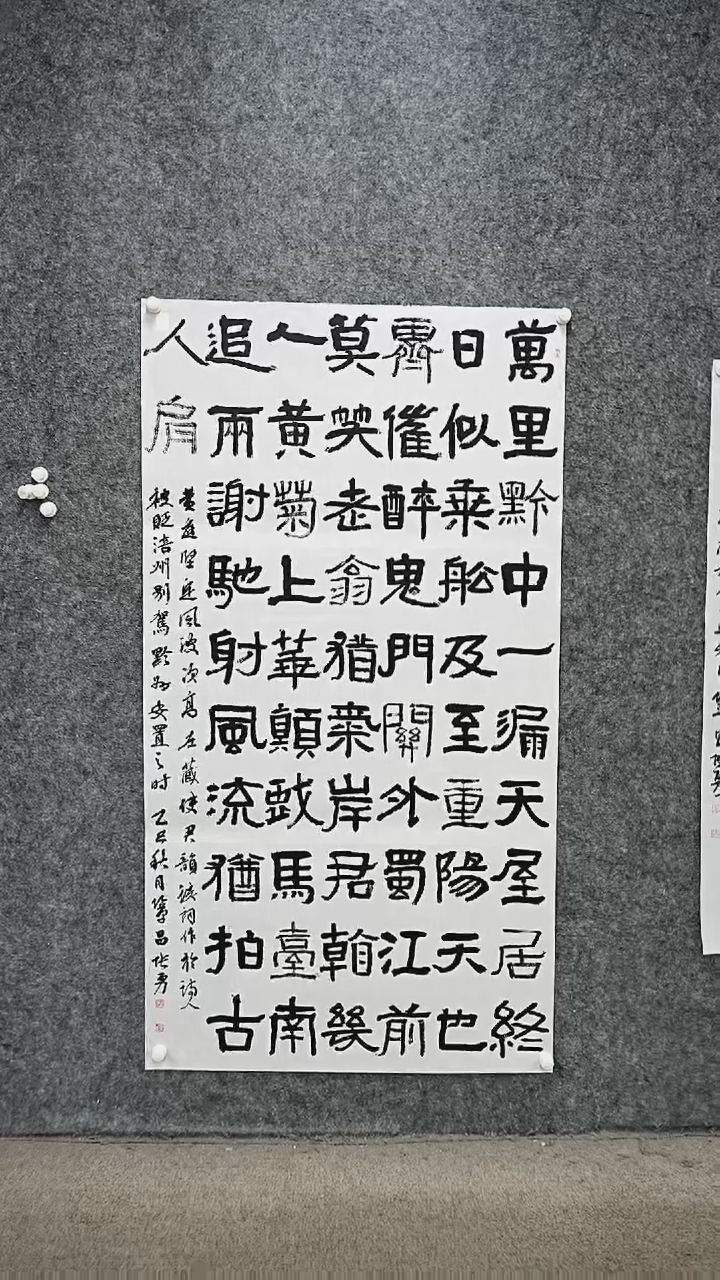 萬里黔中一漏天屋居終
日似乘船及至重陽天也
霽催醉鬼門關外蜀江前
莫笑老翁猶氣岸君看幾
人黄菊上華顛戲馬臺南
追兩謝馳射風流猶拍古
人肩
黄庭堅定風波次高左藏使君韻該詞作於詩人
被貶涪州別駕黔州安置之時 乙巳秋月 张勇